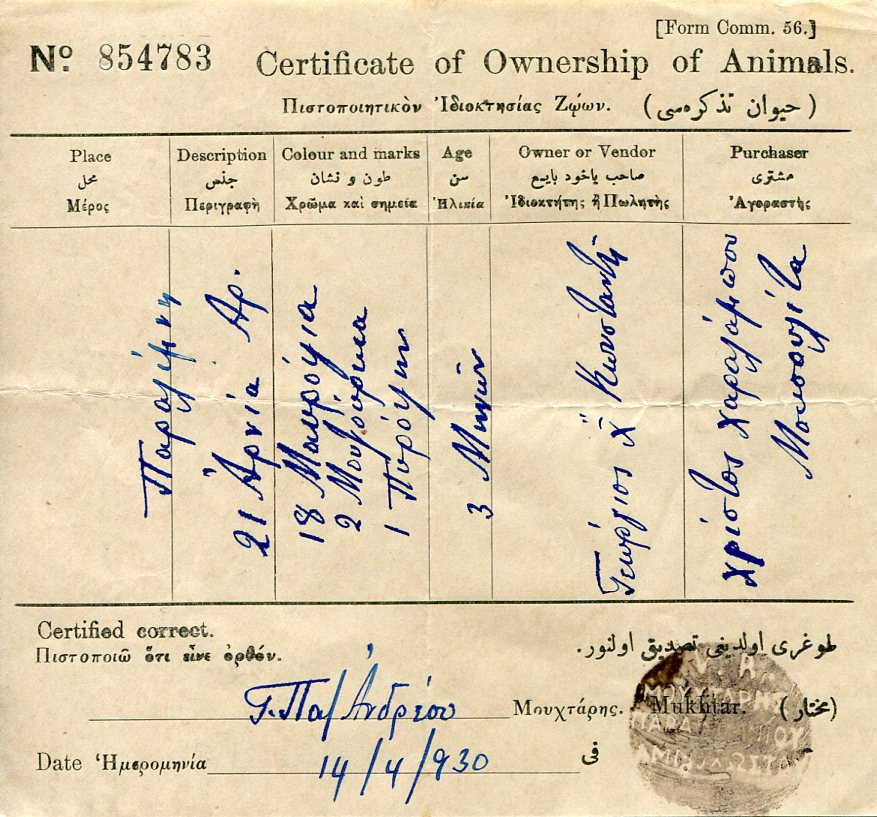 [Form Comm. 56.]
Nº 854783
Certificate of Ownership of Animals.
Πιστοποιητικὸν Ἰδιοκτησίας Ζῴων. (حیوان تذكره‌سی)
Place Description Colour and marks Age Owner or Vendor Purchaser
محل جنس طون و نشان سن صاحب یاخود بایع مشتری
Μέρος Περιγραφὴ Χρῶμα καὶ σημεῖα Ἡλικία Ἰδιοκτήτης ἢ Πωλητὴς Ἀγοραστὴς
Παραλίμνη
21 Ἀρνία Αρ.
18 Μαυρόψια
2 Μουζούρικα
1 Πυρόψιν
3 Μηνῶν
Γεώργιος Χ" Κωνσταντῆ
Χρίστος Χαραλάμπου
Μουσουλίτα
Certified correct.
Πιστοποιῶ ὅτι εἶνε ὀρθόν.
طوغری اولدینی تصدیق اولنور.
Γ. Πα/Ἀνδρέου Μουχτάρης. Mukhtar. (مختار)
Date Ἡμερομηνία 14/4/930 فی
ΜΟΥΧΤΑΡΗΣ